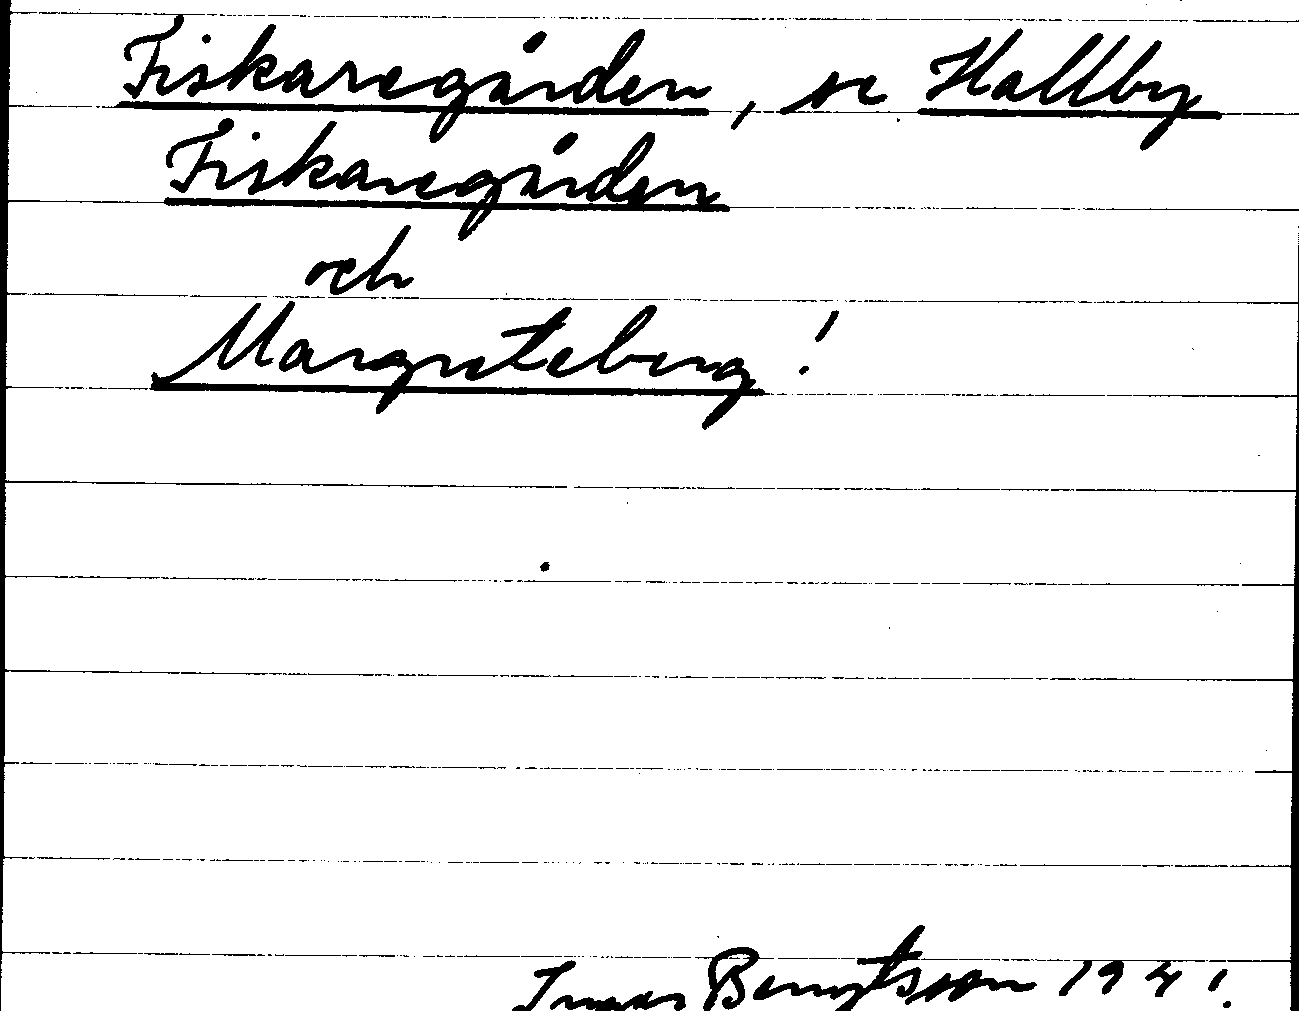 Fiskaregården, se Hallby
Fiskaregården
och
Margreteberg!
Ingvar Bengtsson 1941.